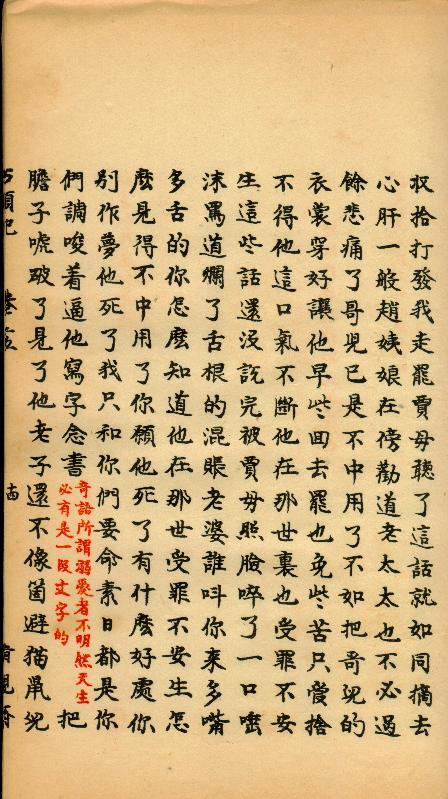 收拾打發我走罷賈母聽了這話就如同摘去
心肝一般趙姨娘在傍勸道老太太也不必過
餘悲痛了哥兒已是不中用了不如把哥兒的
衣裳穿好讓他早些回去罷也免些苦只管捨
不得他這口氣不斷他在那世裏也受罪不安
生這些話還沒說完被賈母照臉啐了一口唾
沫罵道爛了舌根的混賬老婆誰呌你來多嘴
多舌的你怎麽知道他在那世受罪不安生怎
麽見得不中用了你願他死了有什麽好處你
别作夢他死了我只和你們要命素日都是你
們調唆着逼他寫字念書
奇語所謂溺愛者不明然天生
必有是一段文字的
把
膽子唬破了見了他老子還不像箇避猫鼠兒